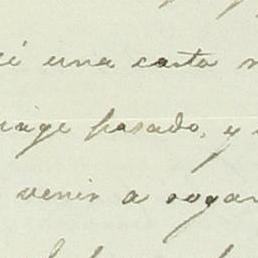 una carta
pasado, y
venir a rogar